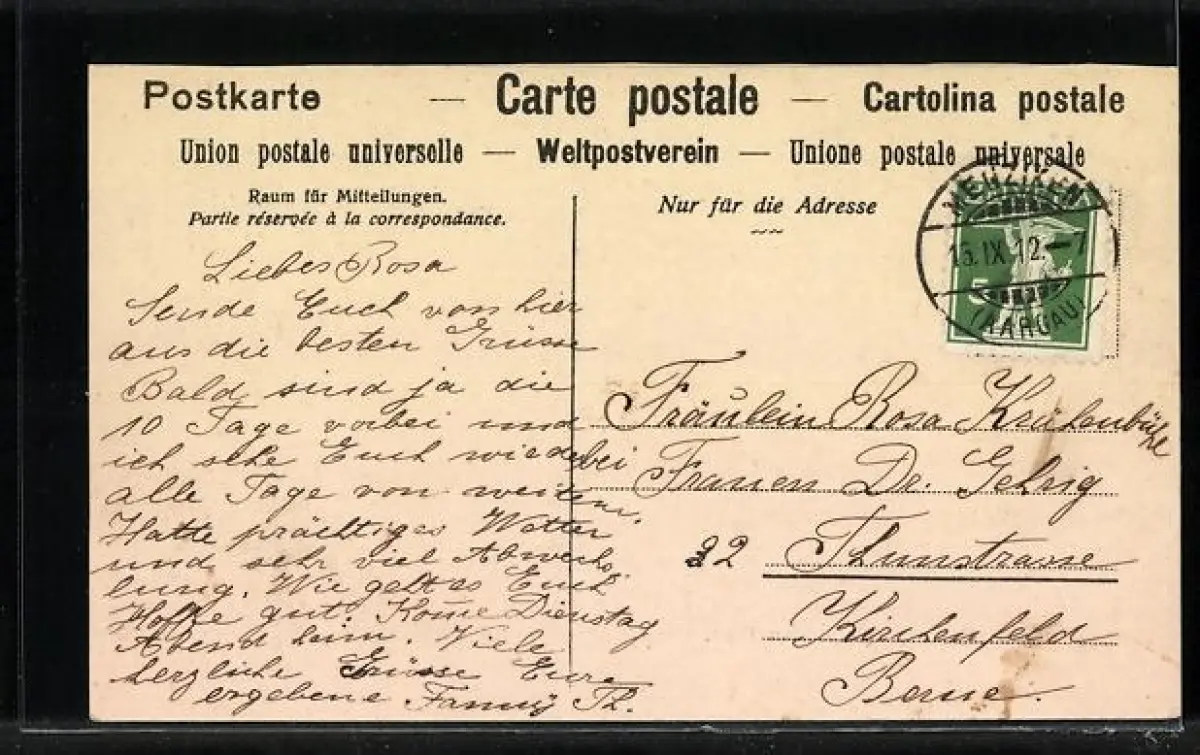 Postkarte — Carte postale — Cartolina postale
Union postale universelle — Weltpostverein — Unione postale universale
Raum für Mitteilungen.
Partie réservée à la correspondance.
Nur für die Adresse
MENZIKEN
15.IX.12.-7
(AARGAU)
5
Liebes Rosa
Sende Euch von hier
aus die besten Grüsse
Bald sind ja die
10 Tage vorbei und
ich sehe Euch wieder
alle Tage von weitem.
Hatte prächtiges Wetter
und sehr viel Abwechs-
lung. Wie geht es Euch
Hoffe gut. Kome Dienstag
Abend heim. Viele
herzliche Grüsse Eure
ergebene Fanny Th.
Fräulein Rosa Krähenbühl
bei Frauen De. Gehrig
22 Thunstrasse
Kirchenfeld
Berne.